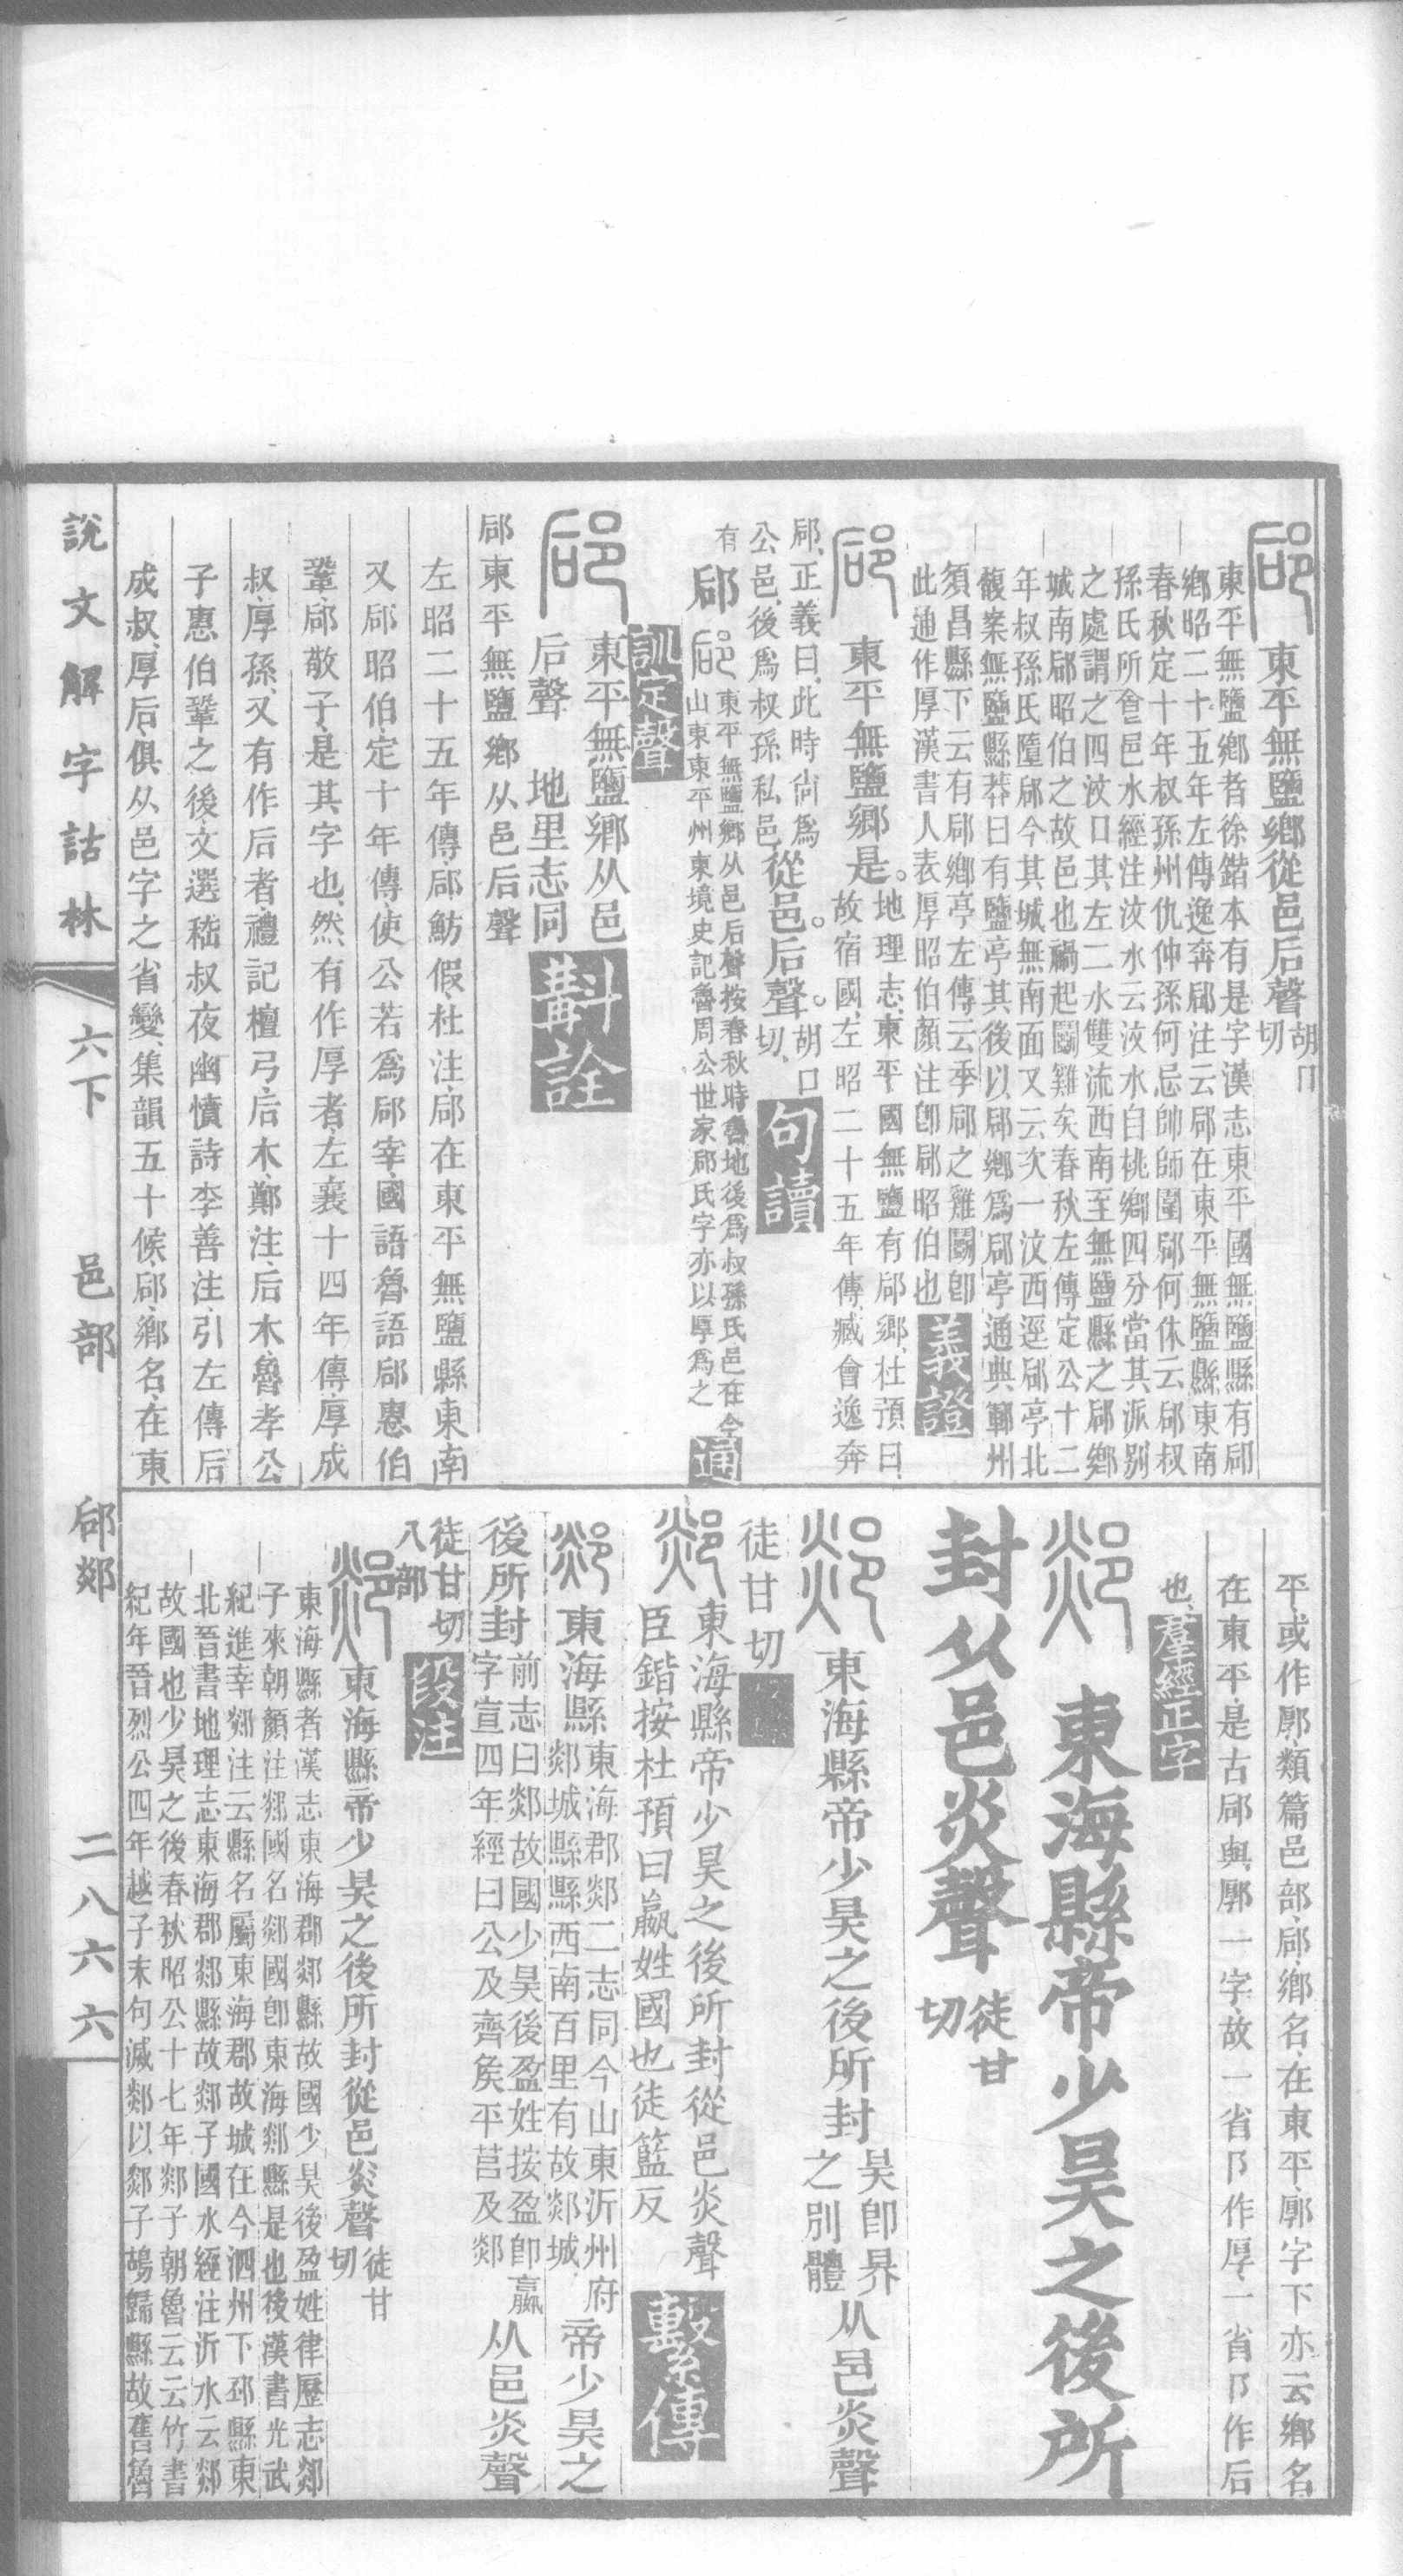 東平無鹽鄉從邑后聲
胡口
切
東平無鹽鄉者徐鍇本有是字漢志東平國無鹽縣有郈
鄉昭二十五年左傳逸奔郈注云郈在東平無鹽縣東南
春秋定十年叔孫州仇仲孫何忌帥師圍郈何休云郈叔
孫氏所食邑水經注汶水云汶水自桃鄉四分當其派別
之處謂之四汶口其左二水雙流西南至無鹽縣之郈鄉
城南郈昭伯之故邑也禍起鬭雞矣春秋左傳定公十二
年叔孫氏墮郈今其城無南面又云次一汶西逕郈亭北
馥案無鹽縣莽曰有鹽亭其後以郈鄉爲郈亭通典鄆州
須昌縣下云有郈鄉亭左傳云季郈之雞鬭卽
此通作厚漢書人表厚昭伯顏注卽郈昭伯也
義證
東平無鹽鄉是。
地理志、東平國無鹽有郈鄉、杜預曰、
故宿國、左昭二十五年傳、臧會逸奔
郈、正義曰、此時尙爲
公邑、後爲叔孫私邑、
從邑。后聲。
胡口
切、
句讀
有郈
東平無鹽鄉从邑后聲按春秋時魯地後爲叔孫氏邑在今
山東東平州東境史記魯周公世家郈氏字亦以厚爲之
通
訓定聲
東平無鹽鄉从邑
后聲 地里志同
斠詮
郈東平無鹽鄉从邑后聲
左昭二十五年傳、郈魴假、杜注、郈在東平無鹽縣東南
又郈昭伯、定十年傳、使公若爲郈宰、國語魯語郈惠伯
鞏、郈敬子、是其字也、然有作厚者、左襄十四年傳、厚成
叔、厚孫、又有作后者、禮記檀弓、后木、鄭注、后木、魯孝公
子惠伯鞏之後、文選嵇叔夜幽憤詩李善注、引左傳后
成叔、厚后、俱从邑字之省變、集韻五十候、郈、鄉名、在東
平或作𨞪、類篇邑部、郈、鄉名、在東平、𨞪字下亦云鄉名
在東平、是古郈與𨞪一字、故一省阝作厚、一省阝作后
也、
羣經正字
東海縣帝少昊之後所
封从邑炎聲
徒甘
切
東海縣帝少昊之後所封
昊卽界
之別體
从邑炎聲
徒甘切
東海縣帝少昊之後所封從邑炎聲
臣鍇按杜預曰嬴姓國也徒籃反
繫傳
東海縣
東海郡郯二志同今山東沂州府
郯城縣縣西南百里有故郯城
帝少昊之
後所封
前志曰郯故國少昊後盈姓按盈卽嬴
字宣四年經曰公及齊矦平莒及郯
从邑炎聲
徒甘切
八部
段注
東海縣帝少昊之後所封從邑炎聲
徒甘
切
東海縣者漢志東海郡郯縣故國少昊後盈姓律歷志郯
子來朝顏注郯國名郯國卽東海郯縣是也後漢書光武
紀進幸郯注云縣名屬東海郡故城在今泗州下邳縣東
北晉書地理志東海郡郯縣故郯子國水經注沂水云郯
故國也少昊之後春秋昭公十七年郯子朝魯云云竹書
紀年晉烈公四年越子末句滅郯以郯子鴣歸縣故舊魯
說文解字詁林
六下
邑部
郈郯
二八六六